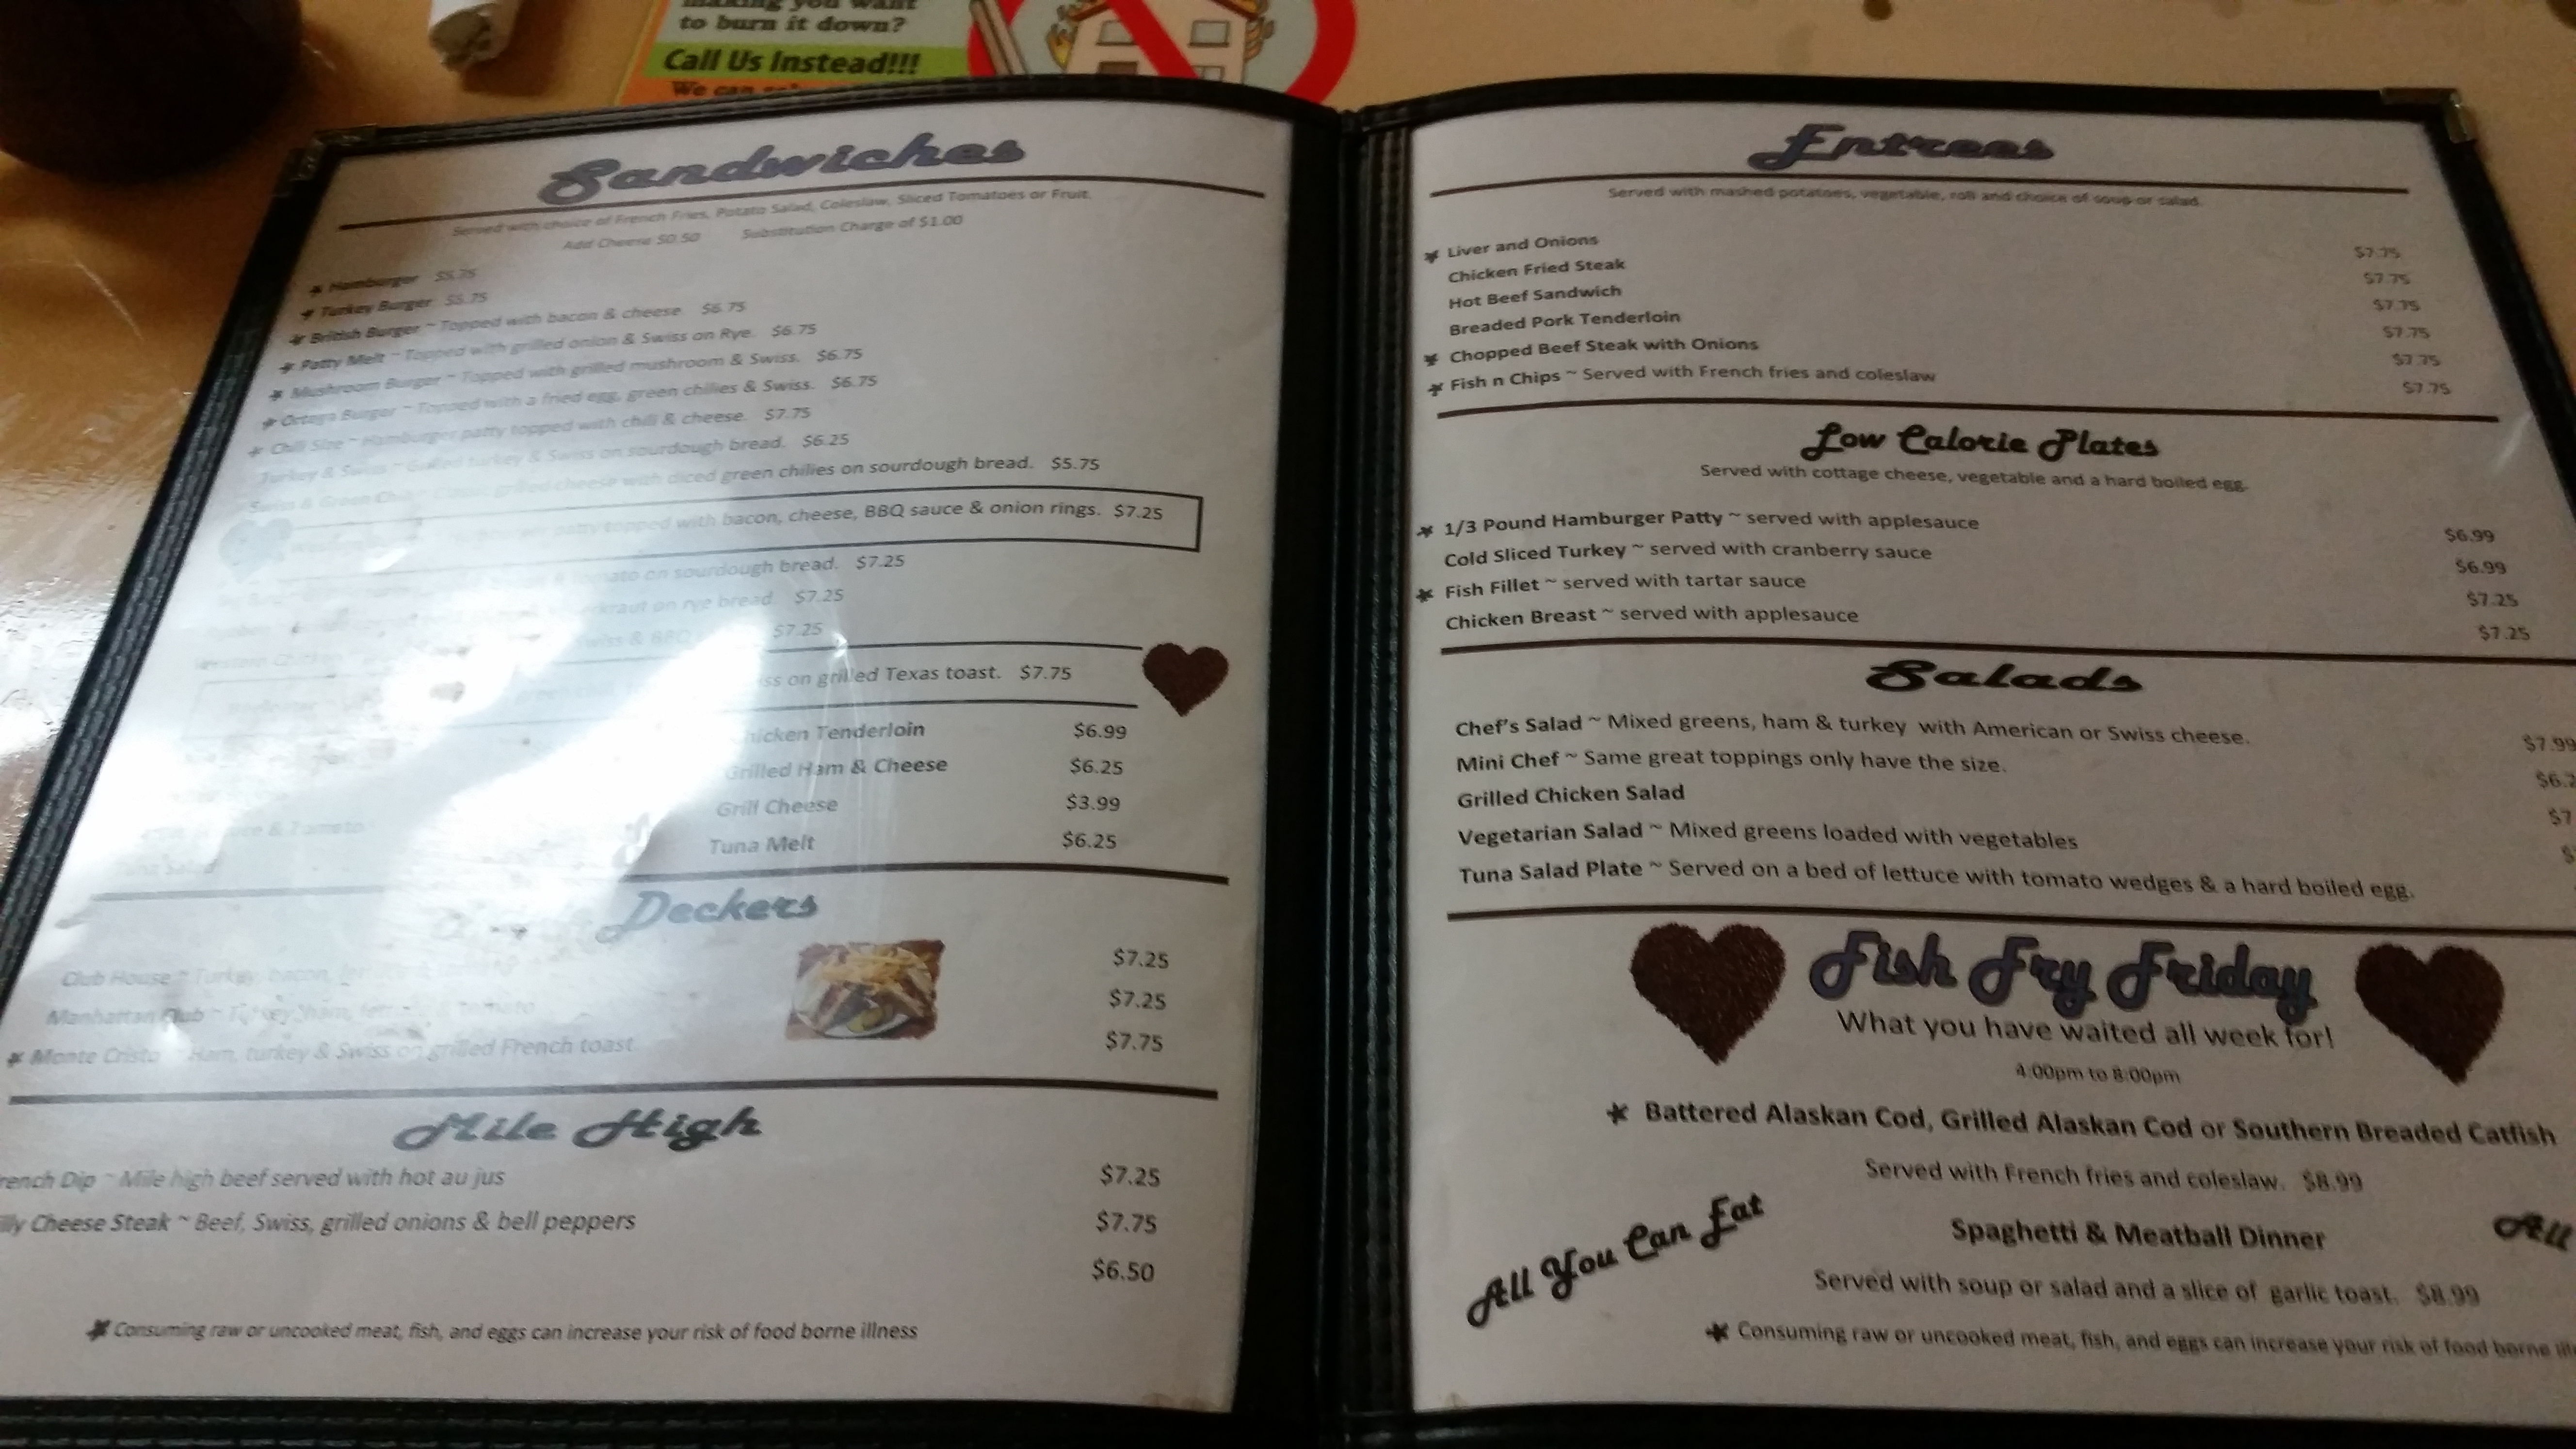 making you want
to burn it down?
Call Us Instead!!!
We can
Sandwiches
Served with choice of French Fries, Potato Salad, Coleslaw, Sliced Tomatoes or Fruit.
Add Cheese $0.50 Substitution Charge of $1.00
Hamburger $5.75
Turkey Burger $5.75
British Burger ~ Topped with bacon & cheese $6.75
Patty Melt ~ Topped with grilled onion & Swiss on Rye. $6.75
Mushroom Burger ~ Topped with grilled mushroom & Swiss. $6.75
Ortega Burger ~ Topped with a fried egg, green chilies & Swiss. $6.75
Chili Size ~ Hamburger patty topped with chili & cheese. $7.75
Turkey & Swiss ~ Grilled turkey & Swiss on sourdough bread. $6.25
Swiss & Green Chili ~ Classic grilled cheese with diced green chilies on sourdough bread. $5.75
patty topped with bacon, cheese, BBQ sauce & onion rings. $7.25
tomato on sourdough bread. $7.25
on rye bread. $7.25
Swiss & BBQ $7.25
on grilled Texas toast. $7.75
Chicken Tenderloin $6.99
Grilled Ham & Cheese $6.25
Grill Cheese $3.99
& Tomato
Tuna Melt $6.25
Tuna Salad
Deckers
Club House ~ Turkey, bacon, $7.25
Manhattan Club ~ Turkey, ham, Tomato $7.25
Monte Cristo ~ Ham, turkey & Swiss on grilled French toast. $7.75
Mile High
rench Dip ~ Mile high beef served with hot au jus $7.25
illy Cheese Steak ~ Beef, Swiss, grilled onions & bell peppers $7.75
$6.50
Consuming raw or uncooked meat, fish, and eggs can increase your risk of food borne illness
Entrees
Served with mashed potatoes, vegetable, roll and choice of soup or salad.
Liver and Onions $7.75
Chicken Fried Steak $7.75
Hot Beef Sandwich $7.75
Breaded Pork Tenderloin $7.75
Chopped Beef Steak with Onions $7.75
Fish n Chips ~ Served with French fries and coleslaw $7.75
Low Calorie Plates
Served with cottage cheese, vegetable and a hard boiled egg.
1/3 Pound Hamburger Patty ~ served with applesauce $6.99
Cold Sliced Turkey ~ served with cranberry sauce $6.99
Fish Fillet ~ served with tartar sauce $7.25
Chicken Breast ~ served with applesauce $7.25
Salads
Chef's Salad ~ Mixed greens, ham & turkey with American or Swiss cheese. $7.99
Mini Chef ~ Same great toppings only have the size. $6.2
Grilled Chicken Salad $7
Vegetarian Salad ~ Mixed greens loaded with vegetables $
Tuna Salad Plate ~ Served on a bed of lettuce with tomato wedges & a hard boiled egg.
Fish Fry Friday
What you have waited all week for!
4:00pm to 8:00pm
Battered Alaskan Cod, Grilled Alaskan Cod or Southern Breaded Catfish
Served with French fries and coleslaw. $8.99
All You Can Eat
Spaghetti & Meatball Dinner
All
Served with soup or salad and a slice of garlic toast. $8.99
Consuming raw or uncooked meat, fish, and eggs can increase your risk of food borne ill